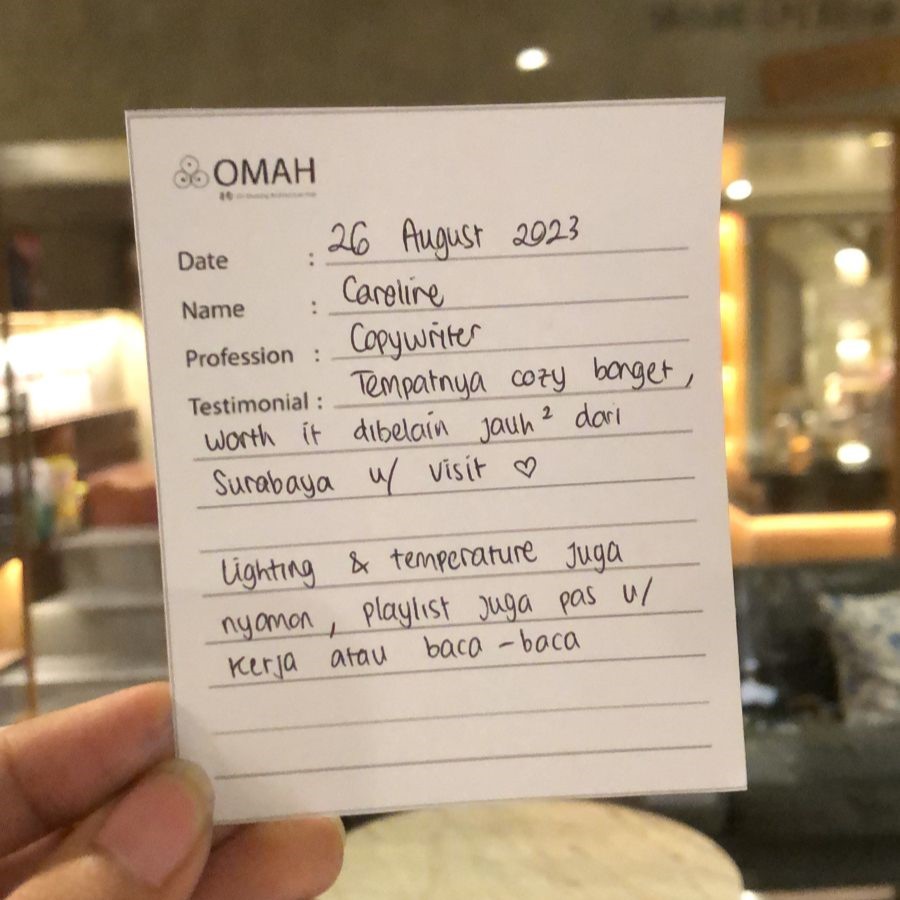 OMAH
Date : 26 August 2023
Name : Caroline
Profession : Copywriter
Testimonial : Tempatnya cozy banget,
worth it dibelain jauh² dari
Surabaya u/ visit ♡
Lighting & temperature juga
nyaman, playlist juga pas u/
kerja atau baca-baca